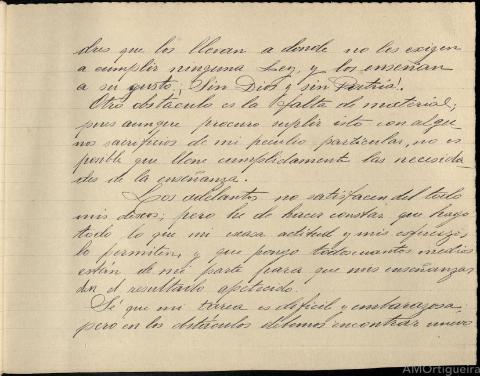 dres que los llevan a donde no les exigen
a cumplir ninguna Ley, y los enseñan
a su gusto; ¡Sin Dios y sin Patria!.
Otro obstáculo es la falta de material;
pues aunque procuro suplir esto con algu
nos sacrificios de mi peculio particular, no es
posible que llene cumplidamente las necesida
des de la enseñanza.
Los adelantos no satisfacen del todo
mis deseos; pero he de hacer constar que hago
todo lo que mi escasa actitud y mis esfuerzos
lo permiten, y que pongo todos cuantos medios
están de mi parte para que mis enseñanzas
den el resultado apetecido.
Sé que mi tarea es difícil y embarazosa,
pero en los obstáculos debemos encontrar nuevo
AMOrtigueira